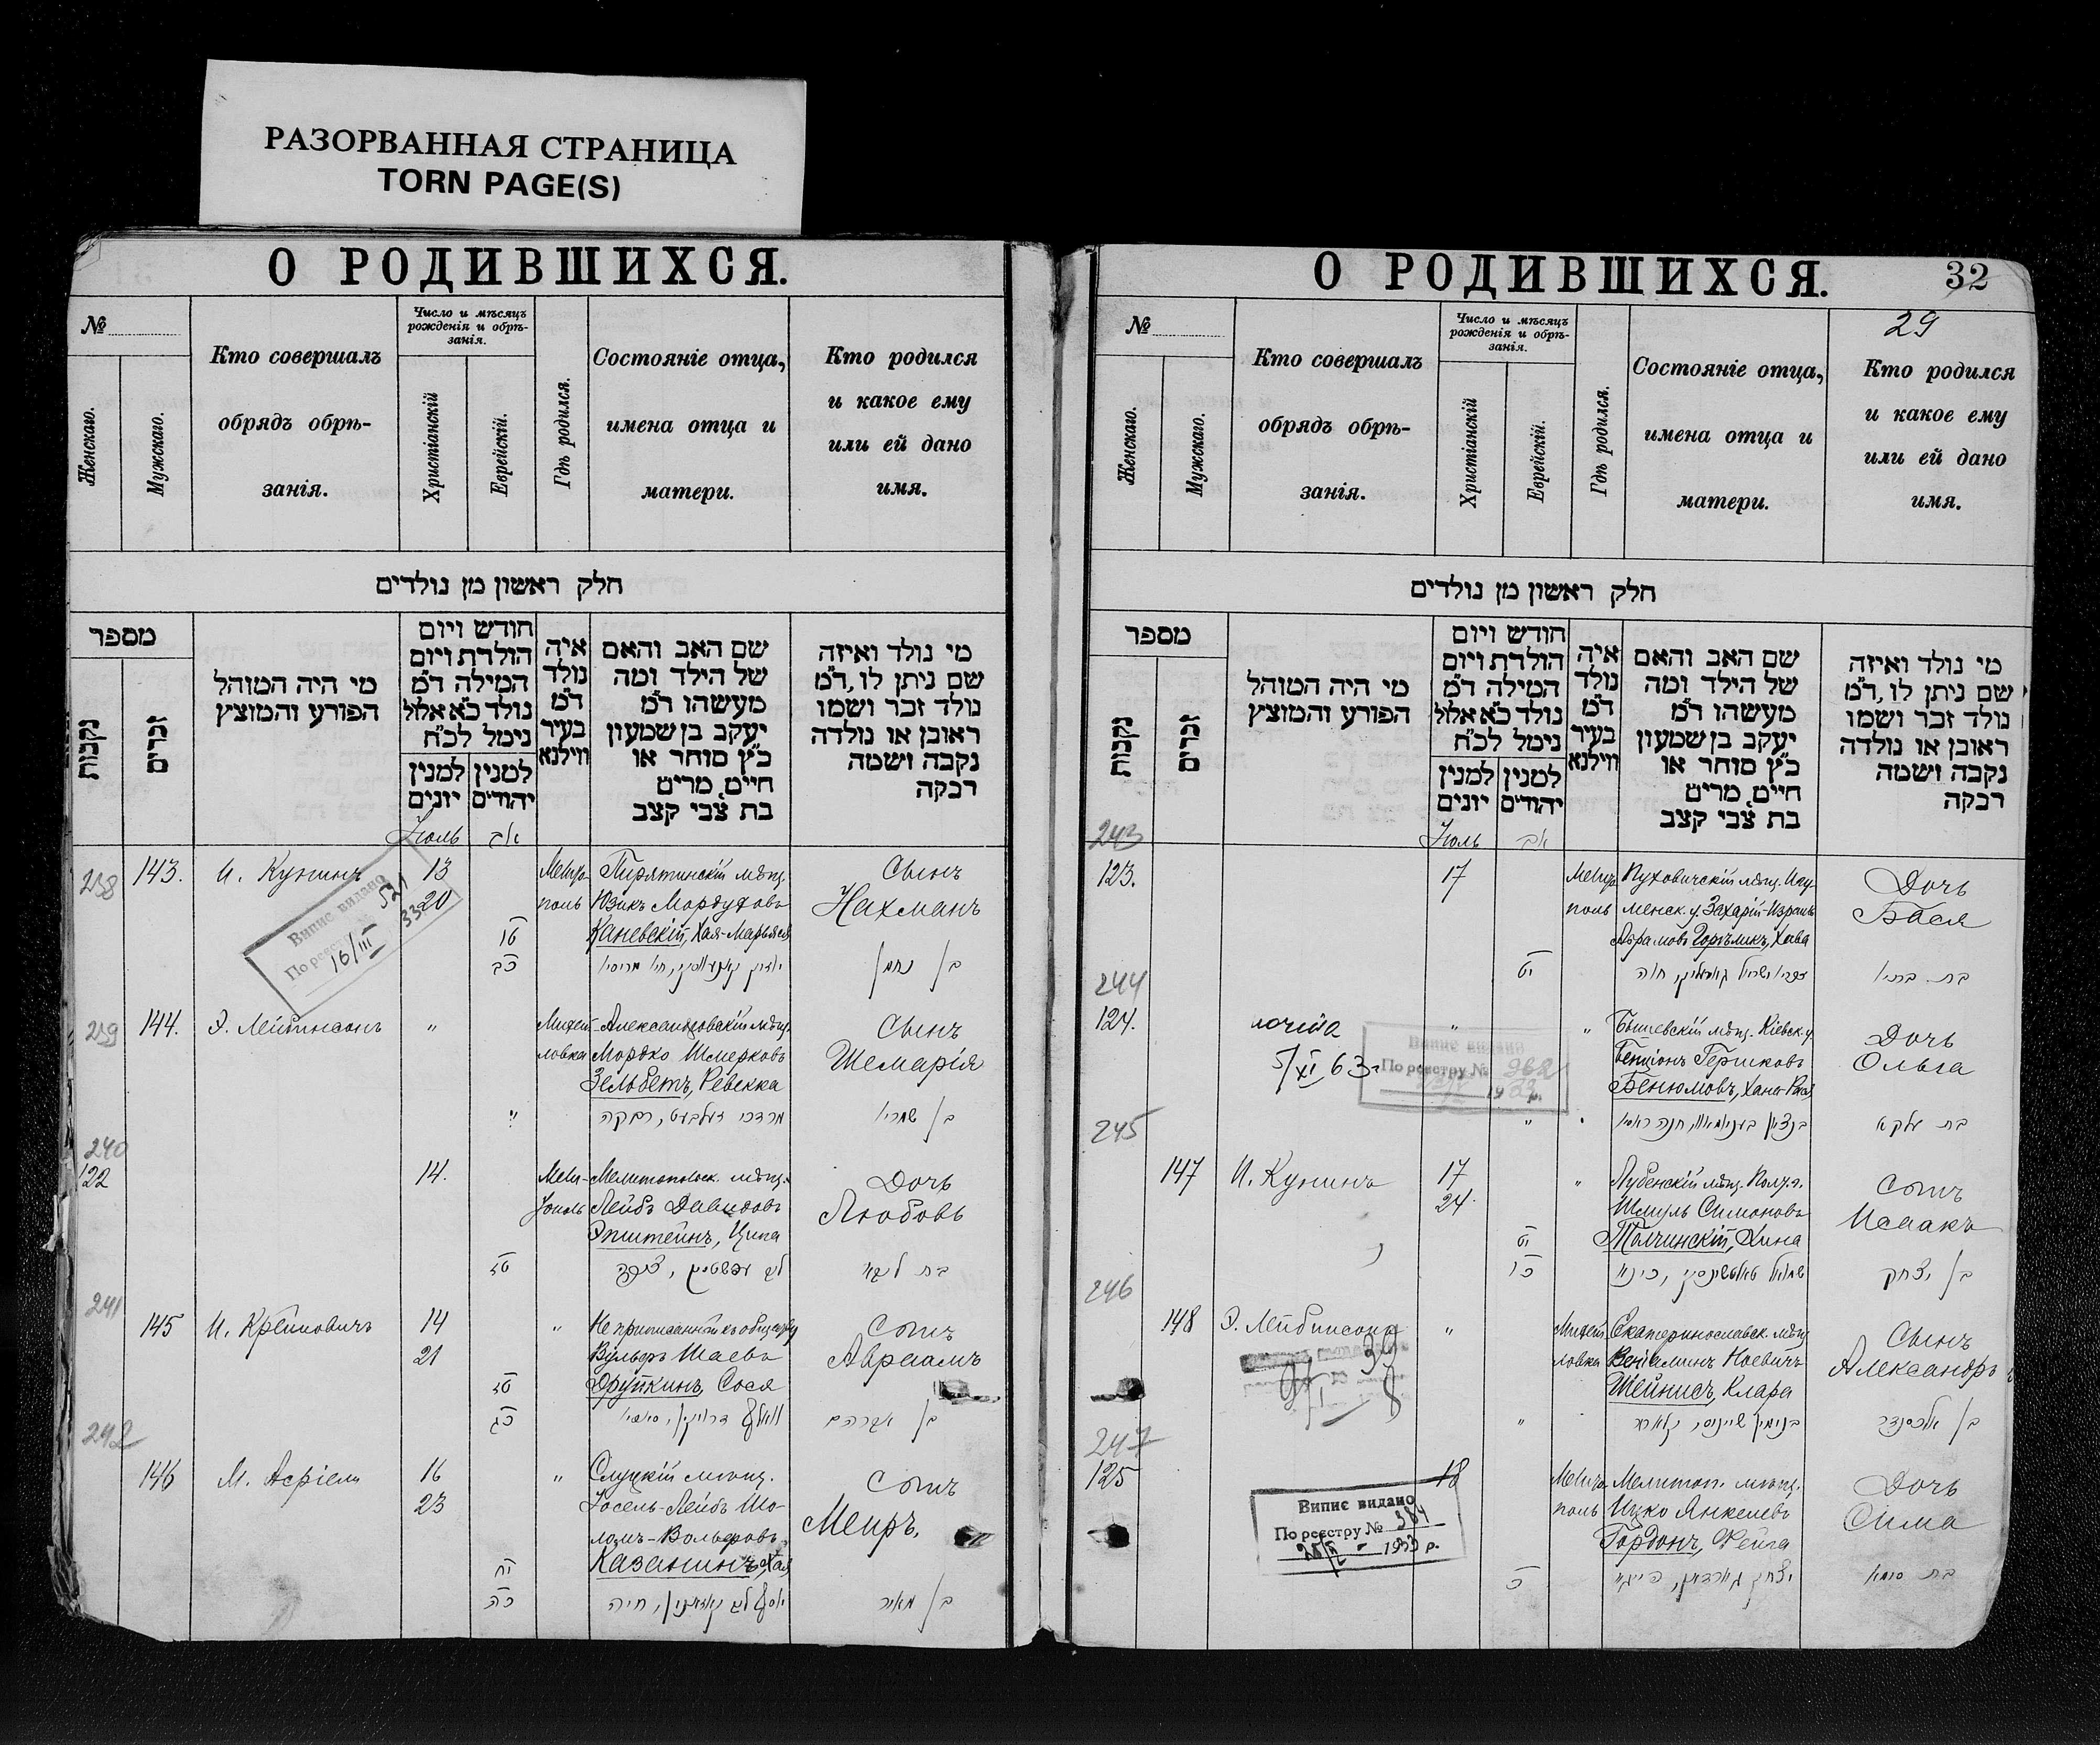 РАЗОРВАННАЯ СТРАНИЦА
TORN PAGE(S)
О РОДИВШИХСЯ.
№
Женскаго.
Мужскаго.
Кто совершалъ
обрядъ обрѣ-
занія.
Число и мѣсяцъ
рожденія и обрѣ-
занія.
Христіанскій
Еврейскій.
Гдѣ родился.
Состояніе отца,
имена отца и
матери.
Кто родился
и какое ему
или ей дано
имя.
חלק ראשון מן נולדים
מספר
נקבות
זכרים
מי היה המוהל
הפורע והמוצץ
חודש ויום
הולדת ויום
המילה ד״מ
נולד כ״א אלול
נימל לכ״ח
למנין
יונים
למנין
יהודים
איה
נולד
ד״מ
בעיר
ווילנא
שם האב והאם
של הילד ומה
מעשהו ד״מ
יעקב בן שמעון
כ״ץ סוחר או
חיים, מרים
בת צבי קצב
מי נולד ואיזה
שם ניתן לו, ד״מ
נולד זכר ושמו
ראובן או נולדה
נקבה ושמה
רבקה
Іюль אב
238 143. И. Кунинъ 13 Мелито- Пирятинскій мѣщ. Сынъ
20 поль Юзикъ Мордуховъ Нахманъ
טו Каневскій, Хая-
כב בן נחמן
Випис видано
По реєстру № 521
16/III 33
239 144. Э. Лейбинсонъ " Михай- Александровскій мѣщ. Сынъ
ловка Мордко Шмерковъ Шемарія
Зельбетъ, Ревекка
" מרדכי זעלבעט, רבקה בן שמריה
240
122 14. Мели- Мелитопольск. мѣщ. Дочь
тополь Лейбъ Давидовъ Любовь
Эпштейнъ, Ципа
טז לייב עפשטיין, ציפה בת
241 145 И. Креймовичъ 14 " Не приписанный къ обществу Сынъ
21 Вульфъ Шаевъ Авраамъ
טז Друпкинъ, Сося
כג בן אברהם
242
146 М. Асріелъ 16 " Слуцкій мѣщ. Сынъ
23 Іосель-Лейбъ Шо- Меиръ.
ломъ-Вольфовъ
יח Казанинъ, Хая
כה חיה בן מאיר
О РОДИВШИХСЯ.
32
29
№
Женскаго.
Мужскаго.
Кто совершалъ
обрядъ обрѣ-
занія.
Число и мѣсяцъ
рожденія и обрѣ-
занія.
Христіанскій
Еврейскій.
Гдѣ родился.
Состояніе отца,
имена отца и
матери.
Кто родился
и какое ему
или ей дано
имя.
חלק ראשון מן נולדים
מספר
נקבות
זכרים
מי היה המוהל
הפורע והמוצץ
חודש ויום
הולדת ויום
המילה ד״מ
נולד כ״א אלול
נימל לכ״ח
למנין
יונים
למנין
יהודים
איה
נולד
ד״מ
בעיר
ווילנא
שם האב והאם
של הילד ומה
מעשהו ד״מ
יעקב בן שמעון
כ״ץ סוחר או
חיים, מרים
בת צבי קצב
מי נולד ואיזה
שם ניתן לו, ד״מ
נולד זכר ושמו
ראובן או נולדה
נקבה ושמה
רבקה
243 Іюль אב
123. 17 Мелито Пуховичскій мѣщ. Игу- Дочь
поль менск. у. Захарій-Израиль Бася
Абрамовъ Горѣликъ, Хава
יט חוה בת
244
124. " " мѣщ. Кіевск. у. Дочь
Бенціонъ Гершковъ Ольга
Бенюмовъ, Хана-
5/XI 63
Випис видано
По реєстру № 262
" בת אלקא
245
147 И. Кунинъ 17 " Лубенскій мѣщ. Полт. г. Сынъ
24. Шмуль Симоновъ Исаакъ
יט Толчинскій, Хина
כו בן יצחק
246
148 Э. Лейбинсонъ " Михай Екатеринославск. мѣщ. Сынъ
ловка Веніаминъ Ноевичъ Александръ
Шейнисъ, Клара
" בנימין שיינוס, קלארא בן אלכסנדר
247
125 18 Мелито Мелитоп. мѣщ. Дочь
поль Ицко Янкелевъ Сима
Гордонъ, Фейга
כ יצחק גארדאן, פייגא בת סימא
Випис видано
По реєстру № 384
1933 р.